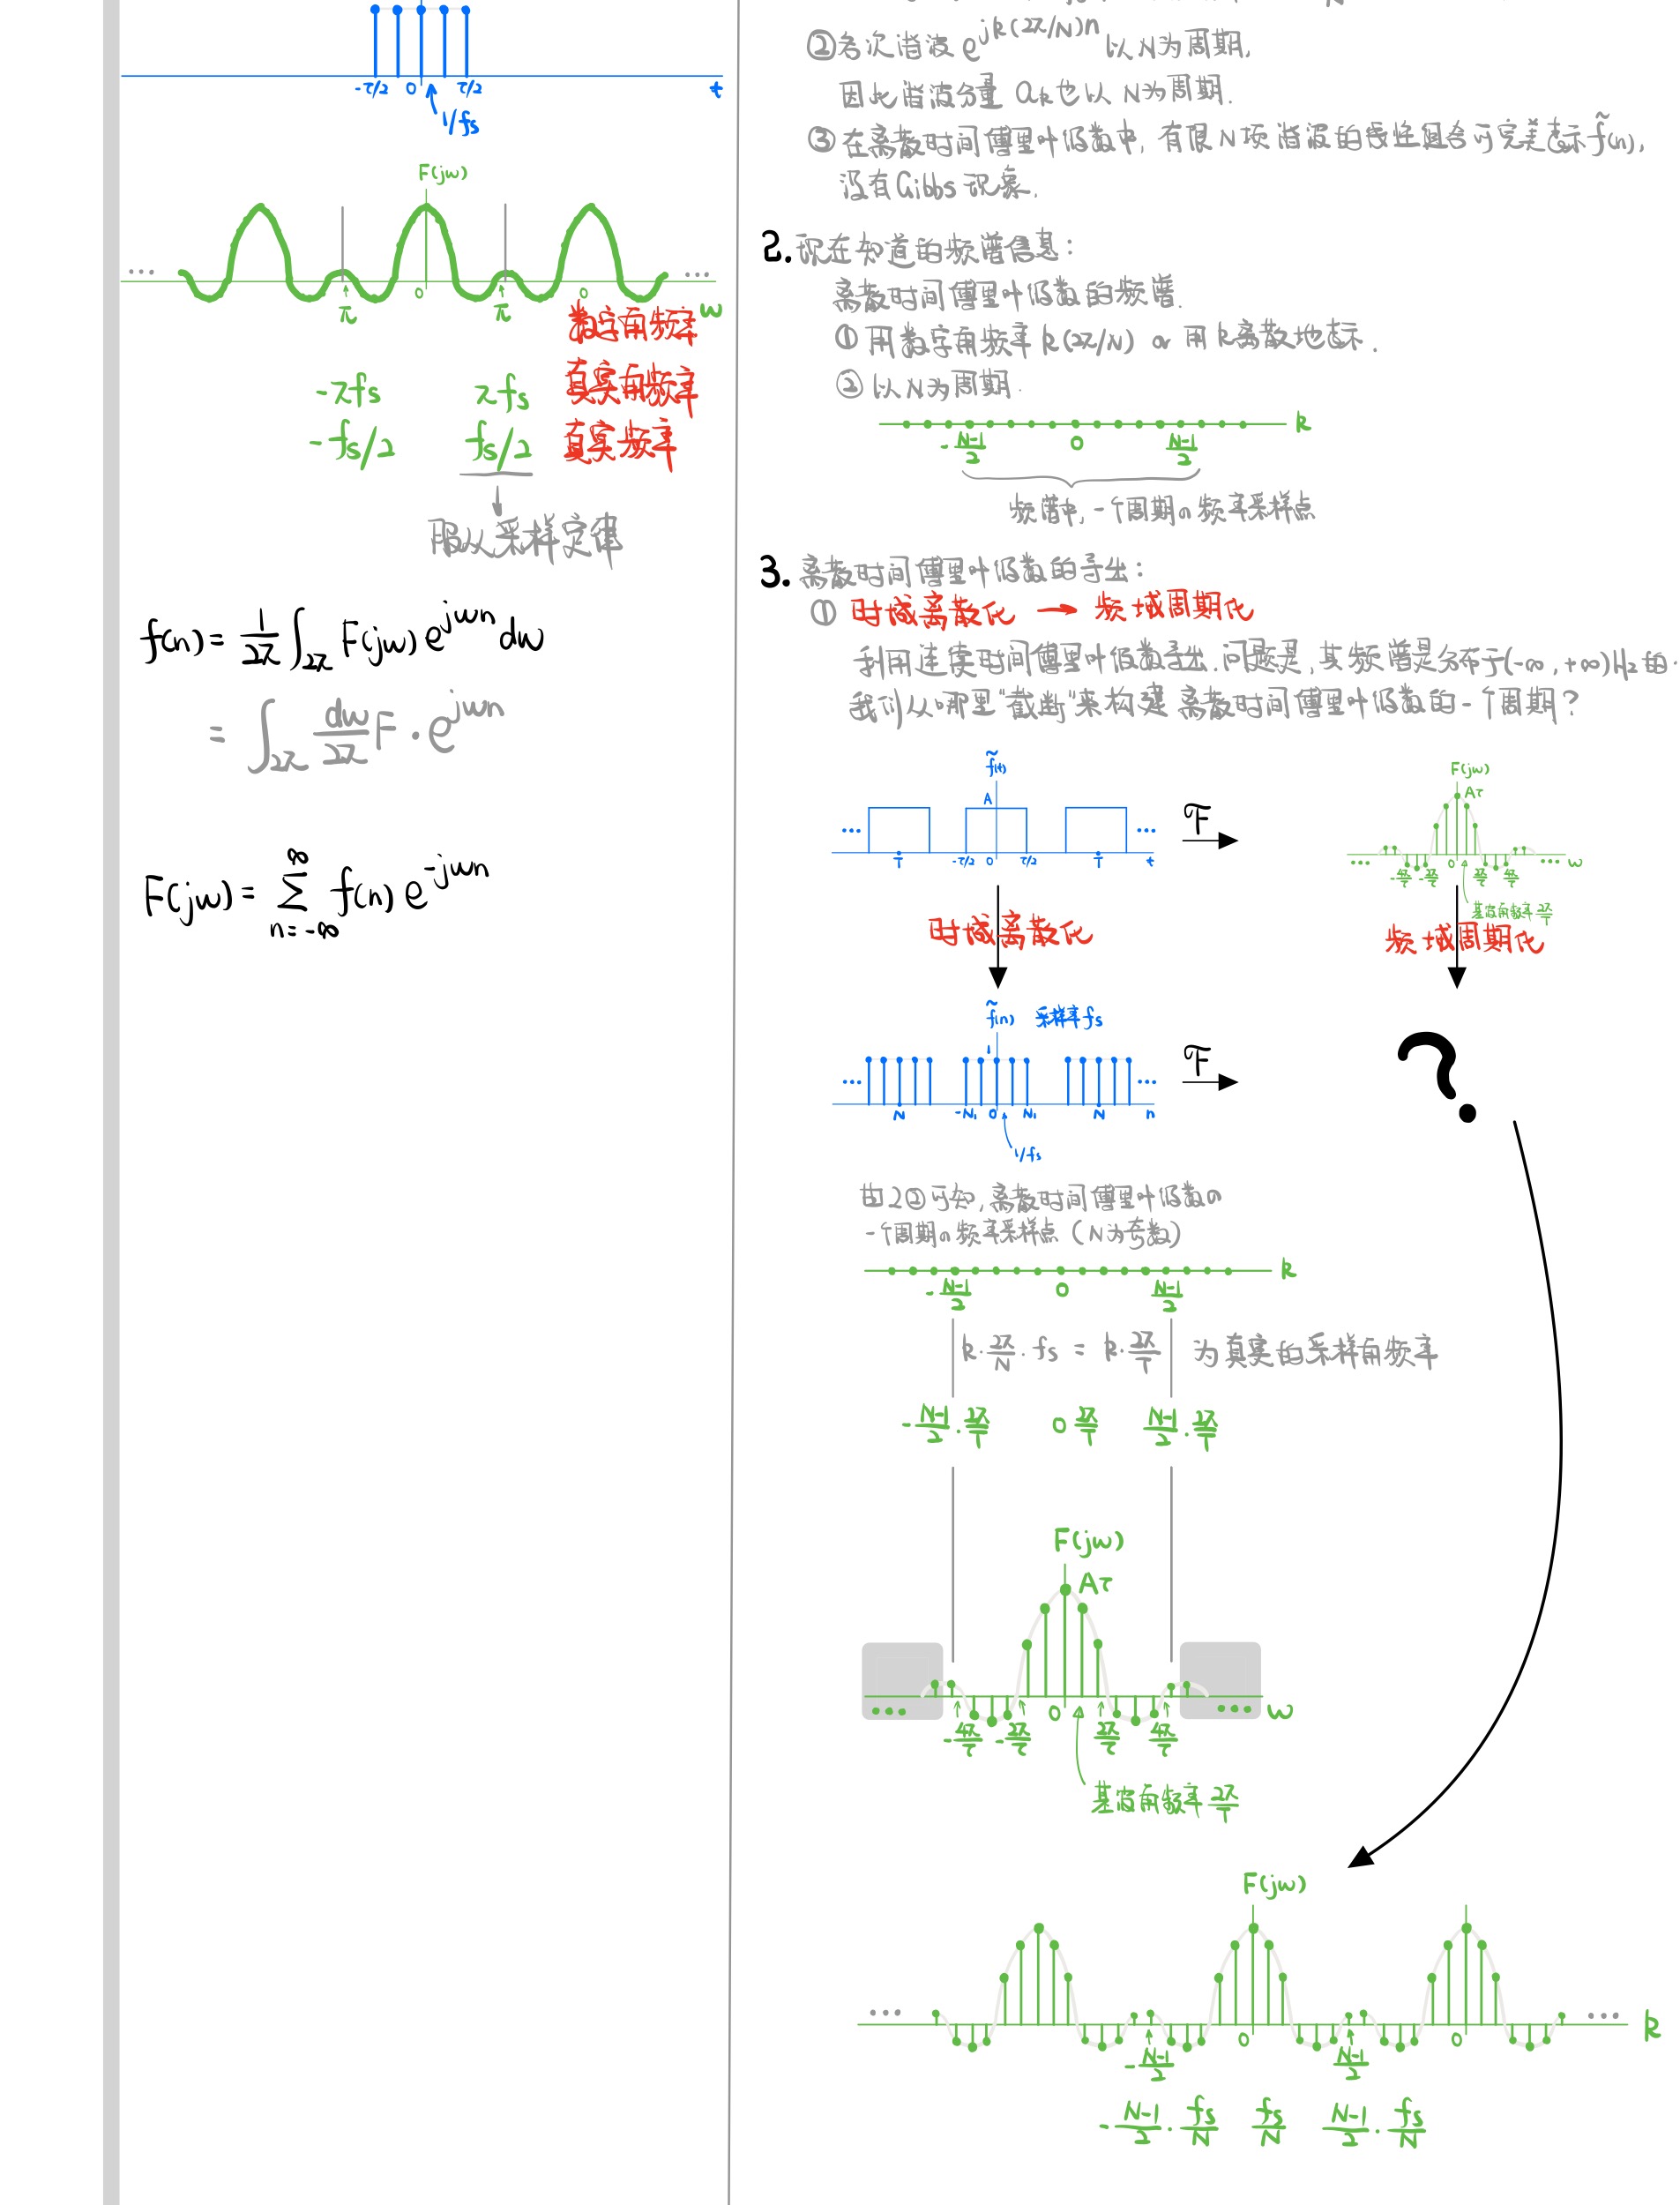 -τ/2 0 τ/2 t
1/fs
F(jw)
... ...
0 0 w
π π 数字角频率
-πfs πfs 真实角频率
-fs/2 fs/2 真实频率
服从采样定律
f(n) = 1/2π ∫2π F(jw) e^jwn dw
= ∫2π dw/2π F · e^jwn
F(jw) = Σ n=-∞ ∞ f(n) e^-jwn
②各次谐波 e^jk(2π/N)n 以N为周期,
因此谐波分量 ak也以 N为周期.
③ 在离散时间傅里叶级数中, 有限N项谐波的线性组合可完美表示 f̃(n),
没有Gibbs现象.
2. 现在知道的频谱信息:
离散时间傅里叶级数的频谱.
① 用数字角频率 k(2π/N) or 用k离散地表示.
② 以N为周期.
k
-N-1/2 0 N-1/2
频谱中,一个周期の频率采样点
3. 离散时间傅里叶级数的导出:
① 时域离散化 → 频域周期化
利用连续时间傅里叶级数导出.问题是,其频谱是分布于(-∞,+∞)Hz的.
我们从哪里"截断"来构建离散时间傅里叶级数的一个周期?
f̃(t)
A
... ...
T -τ/2 0 τ/2 T t
F
F(jw)
Aτ
... ... w
-4π/τ -2π/τ 0 2π/τ 4π/τ
基波角频率 2π/T
时域离散化
频域周期化
f̃(n) 采样率fs
1
... ...
N -N₁ 0 N₁ N n
1/fs
F
?
由2②可知,离散时间傅里叶级数の
一个周期の频率采样点 (N为奇数)
k
-N-1/2 0 N-1/2
k·2π/N·fs = k·2π/T 为真实的采样角频率
-N-1/2·2π/T 0 2π/T N-1/2·2π/T
F(jw)
Aτ
... ... w
-4π/τ -2π/τ 0 2π/τ 4π/τ
基波角频率 2π/T
F(jw)
... ...
0 0 k
-N-1/2 N-1/2
-N-1/2·fs/N fs/N N-1/2·fs/N